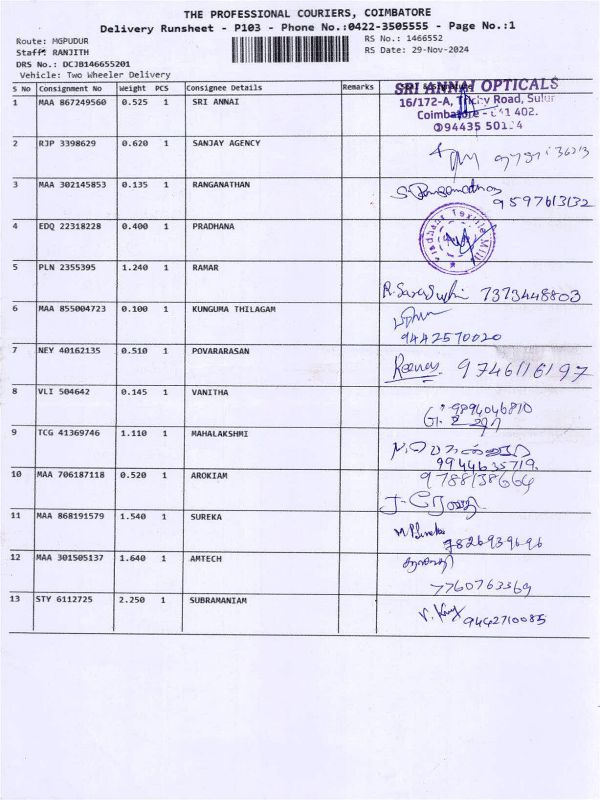 THE PROFESSIONAL COURIERS, COIMBATORE
Delivery Runsheet - P103 - Phone No.:0422-3505555 - Page No.:1
Route: MGPUDUR
RS No.: 1466552
Staff: RANJITH
RS Date: 29-Nov-2024
DRS No.: DCJB146655201
Vehicle: Two Wheeler Delivery
S No Consignment No Weight PCS Consignee Details Remarks
1 MAA 867249560 0.525 1 SRI ANNAI
SRI ANNAI OPTICALS
16/172-A, Trichy Road, Sulur
Coimbatore - 641 402.
94435
2 RJP 3398629 0.620 1 SANJAY AGENCY
3 MAA 302145853 0.135 1 RANGANATHAN
9597613132
4 EDQ 22318228 0.400 1 PRADHANA
Textile
5 PLN 2355395 1.240 1 RAMAR
7373448803
6 MAA 855004723 0.100 1 KUNGUMA THILAGAM
9442570020
7 NEY 40162135 0.510 1 POVARARASAN
9746116197
8 VLI 504642 0.145 1 VANITHA
9894046810
9 TCG 41369746 1.110 1 MAHALAKSHMI
9944635719.
10 MAA 706187118 0.520 1 AROKIAM
9788138664
11 MAA 868191579 1.540 1 SUREKA
7826939696
12 MAA 301505137 1.640 1 AMTECH
7760763369
13 STY 6112725 2.250 1 SUBRAMANIAM
9442710085